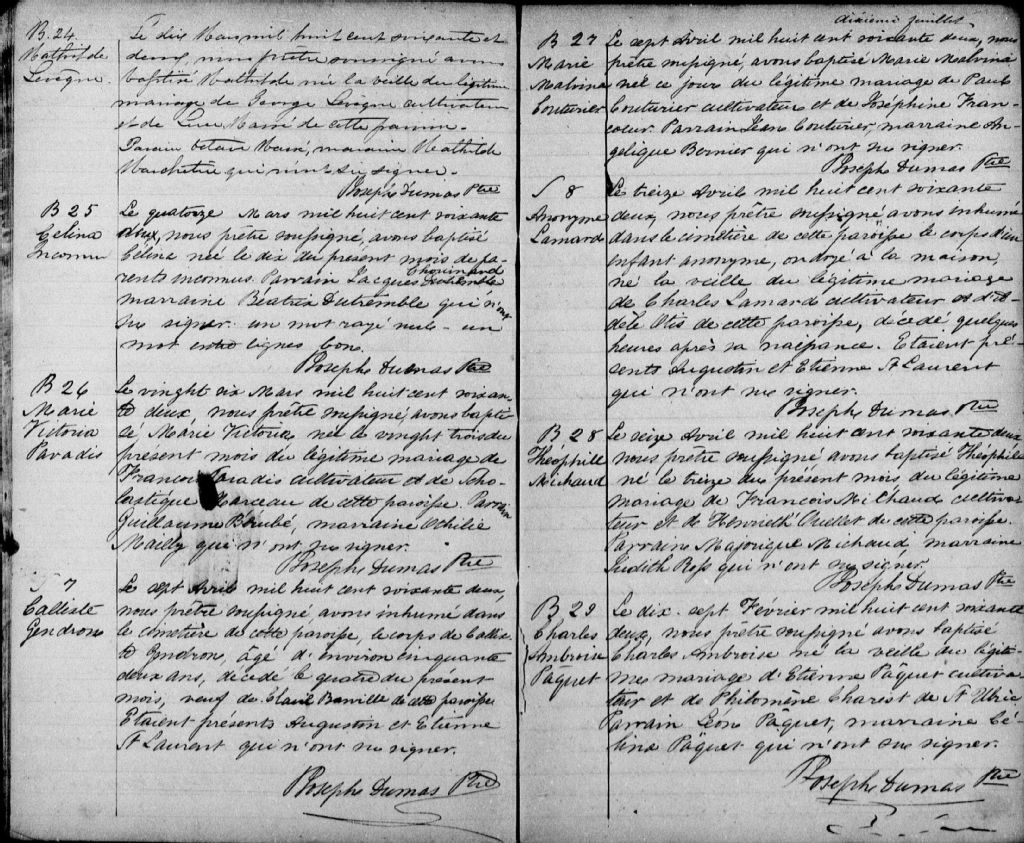 B. 24
Mathilde
Levêque.
Le dix Mars mil huit cent soixante et
deux, nous prêtre soussigné avons
baptisé Mathilde née la veille du légitime
mariage de George Levêque cultivateur
et de Luce Massé de cette paroisse.
Parain marraine Mathilde
qui n'ont su signer.
Joseph Dumas Ptre
B 25
Celina
Inconnu
Le quatorze Mars mil huit cent soixante
deux, nous prêtre soussigné, avons baptisé
Célina née le dix du présent mois de pa-
rents inconnus. Parrain Jacques Chouinard
marraine Béatrix Dutremble qui n'ont
su signer. un mot rayé nul - un
mot entre lignes bon.
Joseph Dumas Ptre
B 26
Marie
Victoria
Paradis
Le vinght six Mars mil huit cent soixan-
te deux, nous prêtre soussigné, avons bapti-
sé Marie Victoria, née le vinght trois du
présent mois du légitime mariage de
François Paradis cultivateur et de Scho-
lastique Marceau de cette paroisse. Parrain
Guillaume Bérubé, marraine Othilie
Mailly qui n'ont su signer.
Joseph Dumas Ptre
S 7
Calliste
Gendron
Le sept Avril mil huit cent soixante deux,
nous prêtre soussigné, avons inhumé dans
le cimetière de cette paroisse, le corps de Callis-
te Gendron, âgé d'environ cinquante
deux ans, décédé le quatre du présent
mois, veuf de Banville de cette paroisse
Etaient présents Augustin et Etienne
St Laurent qui n'ont su signer.
Joseph Dumas Ptre
dixième feuillet.
B 27
Marie
Malvina
Couturier
Le sept Avril mil huit cent soixante deux, nous
prêtre soussigné, avons baptisé Marie Malvina
née ce jour du légitime mariage de Paul
Couturier cultivateur et de Joséphine Fran-
coeur. Parrain Jean Couturier, marraine An-
gélique Bernier qui n'ont su signer.
Joseph Dumas Ptre
S 8
Anonyme
Lamard
Le treize Avril mil huit cent soixante
deux, nous prêtre soussigné avons inhumé
dans le cimetière de cette paroisse le corps d'un
enfant anonyme, ondoyé à la maison
né la veille du légitime mariage
de Charles Lamard cultivateur et d'A-
dèle Otis de cette paroisse, décédé quelques
heures après sa naissance. Etaient pré-
sents Augustin et Etienne St Laurent
qui n'ont su signer.
Joseph Dumas Ptre
B 28
Théophile
Michaud
Le seize Avril mil huit cent soixante deux
nous prêtre soussigné avons baptisé Théophile
né le treize du présent mois du légitime
mariage de François Michaud cultiva-
teur et de Henriett Ouellet de cette paroisse.
Parrain Majorique Michaud, marraine
Judith Ross qui n'ont su signer.
Joseph Dumas Ptre
B 29
Charles
Ambroise
Pâquet
Le dix-sept Février mil huit cent soixante
deux, nous prêtre soussigné avons baptisé
Charles Ambroise né la veille du légiti-
me mariage d'Etienne Pâquet cultiva-
teur et de Philomène Charest de St Ulric
Parrain Léon Pâquet, marraine Cé-
lina Pâquet qui n'ont su signer.
Joseph Dumas Ptre